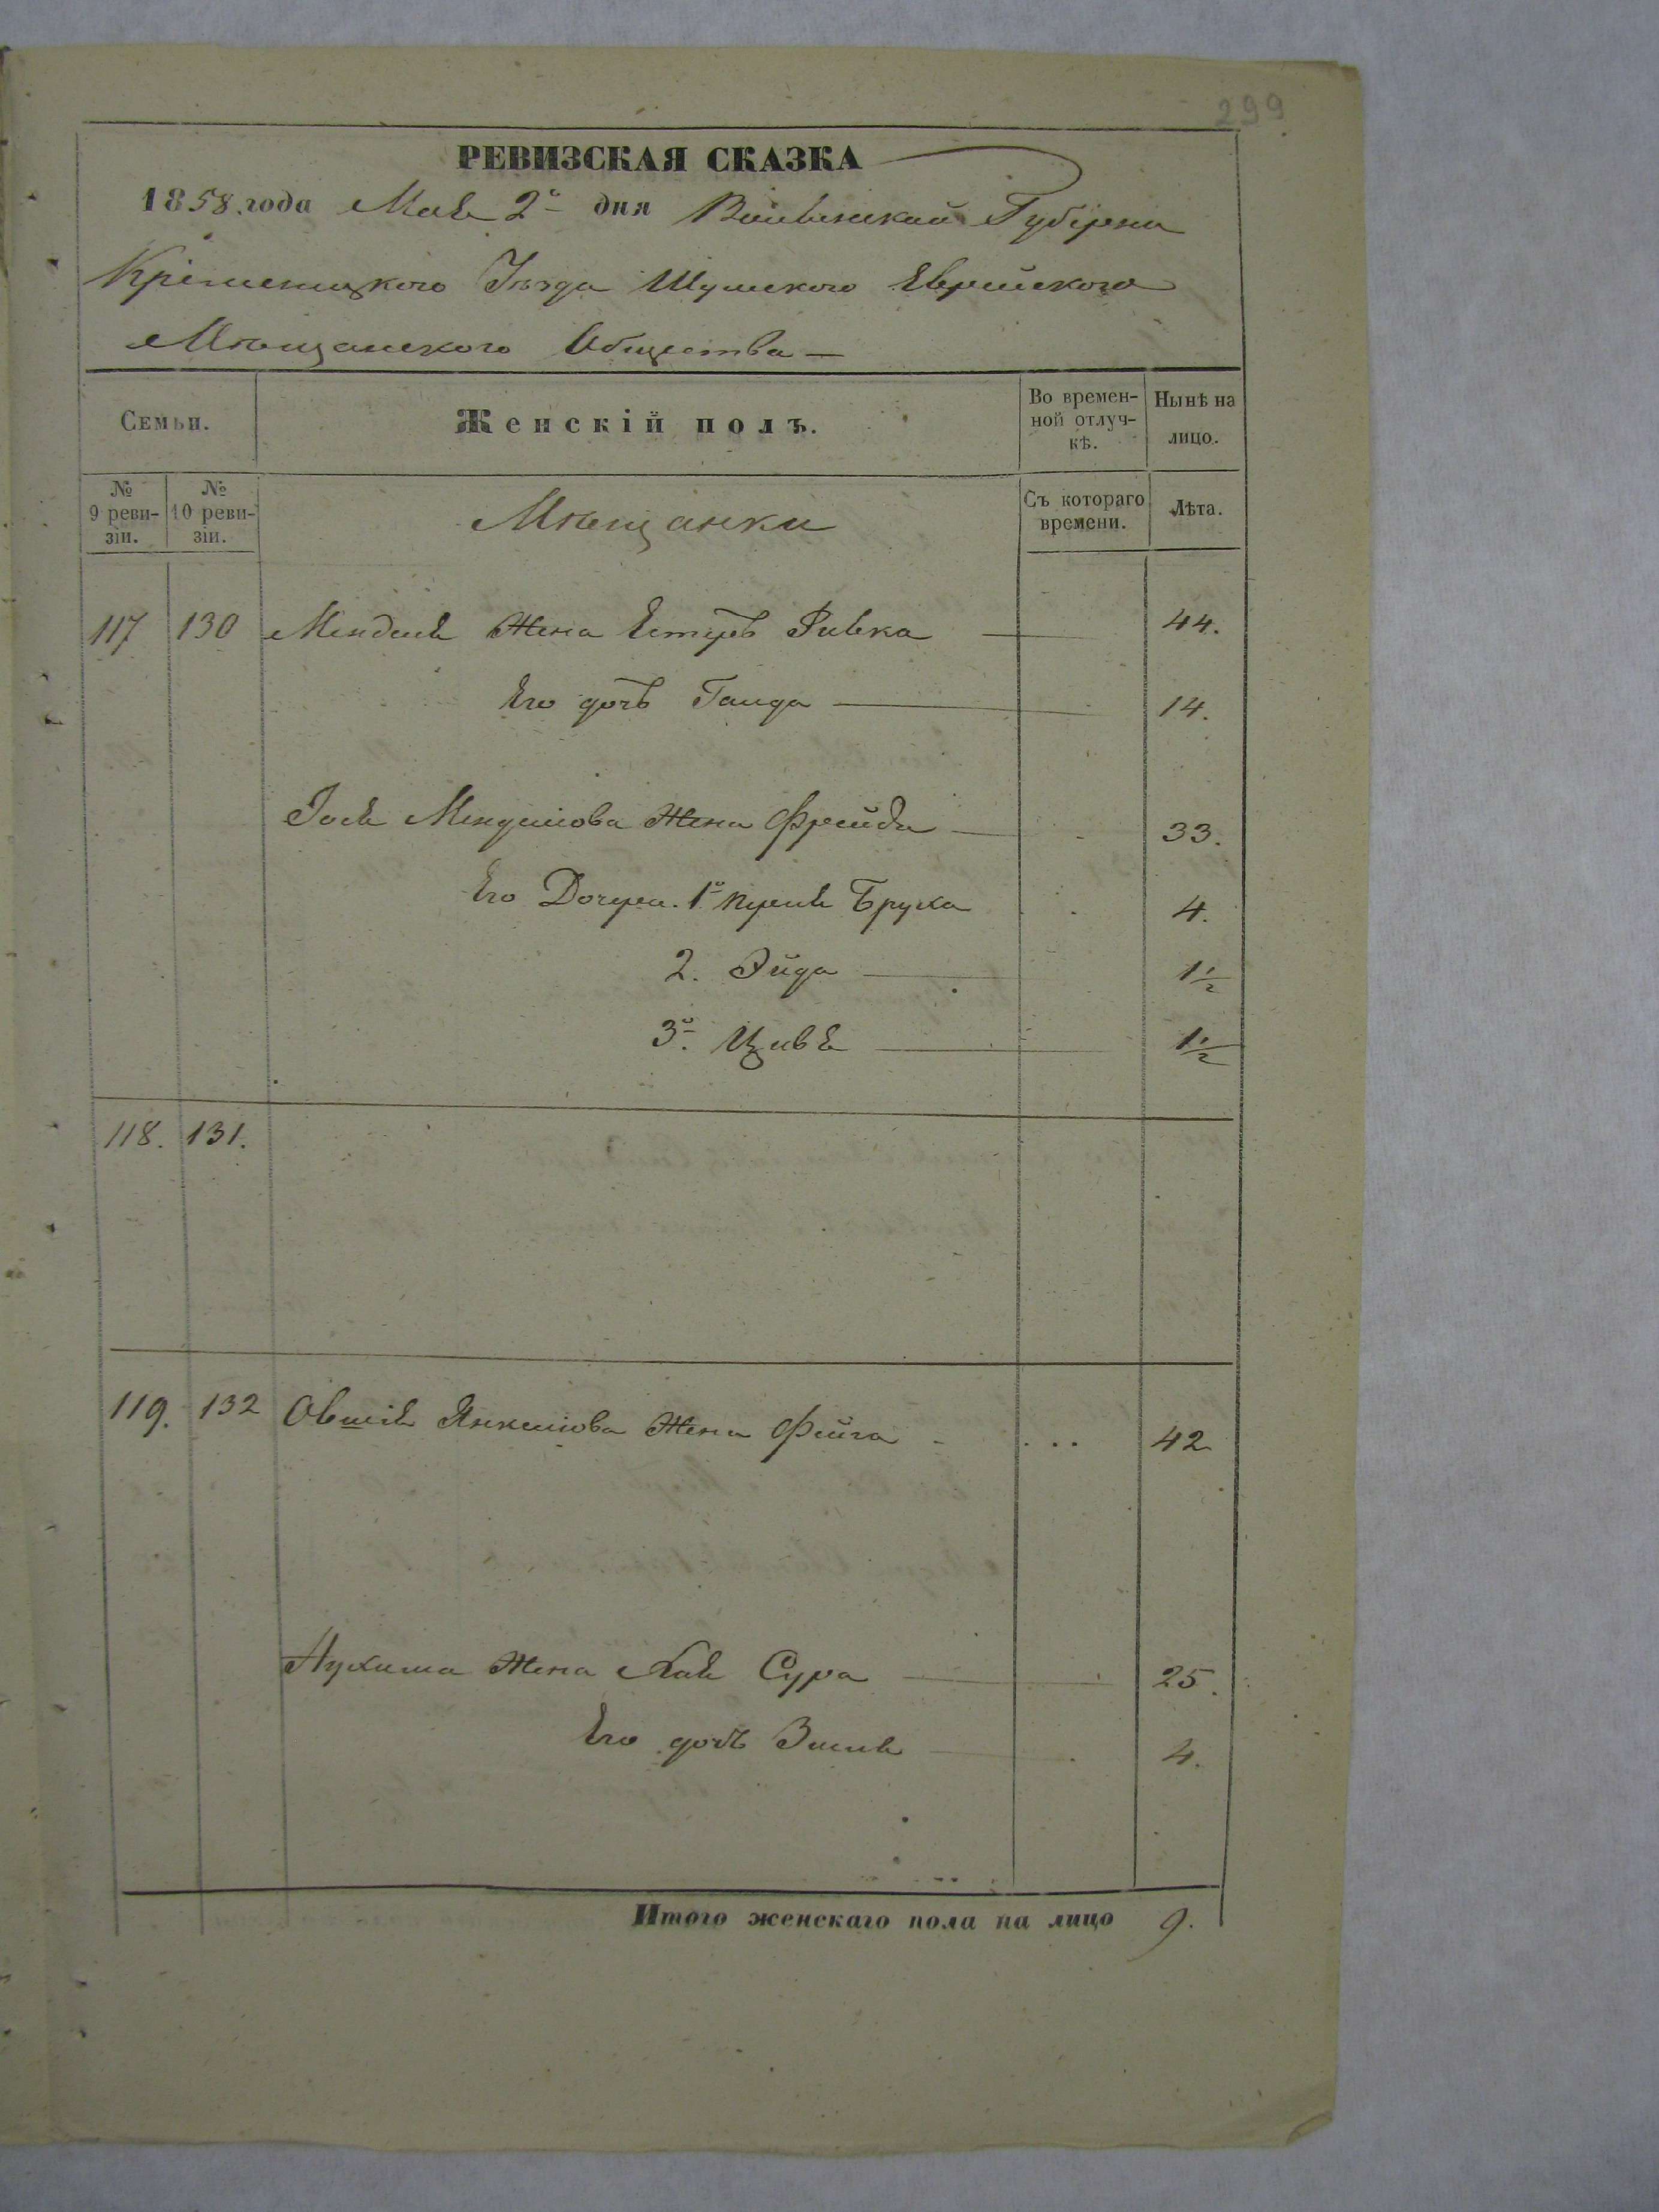 299
РЕВИЗСКАЯ СКАЗКА
1858 года Мая 2го дня Волынской Губерни
Кременецкого Уѣзда Шумского Еврейского
Мѣщанского Общества
Семьи. Женскій полъ. Во времен-ной отлуч-кѣ. Нынѣ на лицо.
№ 9 реви-зіи. № 10 реви-зіи. Мѣщанки Съ котораго времени. Лѣта.
117 130 Менделя Жена Естеръ Ривка 44.
Его дочь 14.
Іося Менделова Жена Фрейда 33.
Его Дочери. 1я Бруха 4.
2. Эйда 1 1/2
3я. Цивя 1 1/2
118. 131.
119. 132 Овшія Янкелова Жена Фейга 42
Нухима Жена Хая Сура 25.
Его дочь Зисля 4.
Итого женскаго пола на лицо 9.